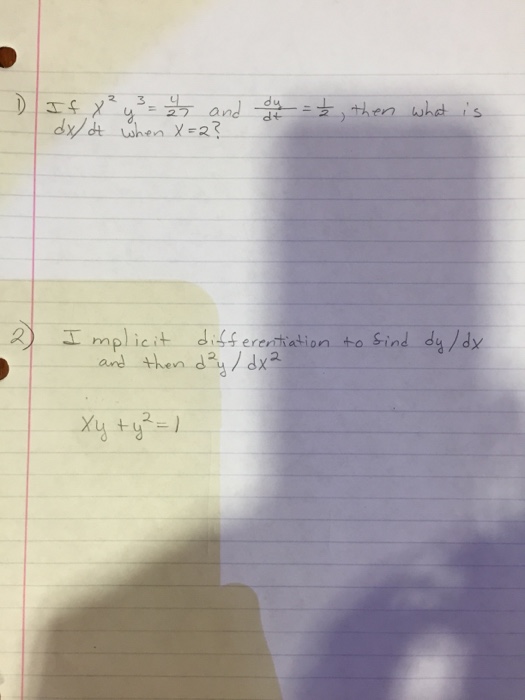 1) If x² y³ = 4/27 and dy/dt = 1/2, then what is
dx/dt when x=2?
2) Implicit differentiation to find dy/dx
and then d²y/dx²
xy + y² = 1